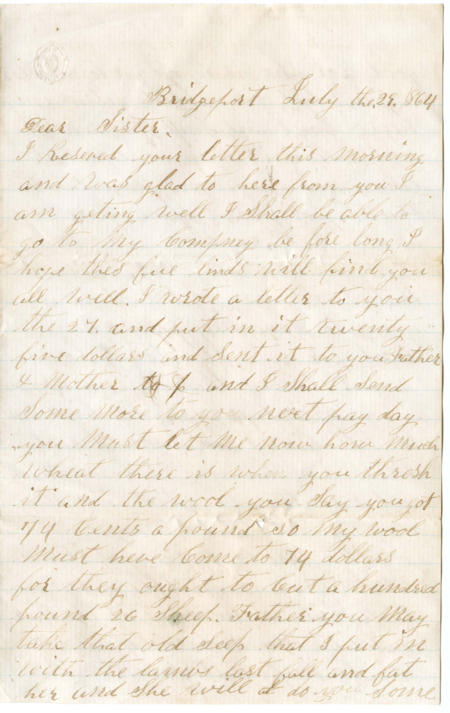 Bridgeport July the.29. 1864
Dear Sister.
I Reseved your letter this morning
and was glad to here from you I
am geting well I Shall be able to
go to my Compney be fore long I
hope thes five linds will find you
all well. I wrote a letter to you
the 27. and put in it twenty
five dollars and Sent it to you Father
& Mother and I Shall Send
Some more to you next pay day
you must let me now how much
wheat there is when you thresh
it and the wool you Say you got
74 Cents a pound so my wool
must heve Come to 74 dollars
for they ought to Cut a hundred
pound 26 Sheep. Father you may
take that old Seep that I put in
with the lambs last fall and fat
her and She will do you Some